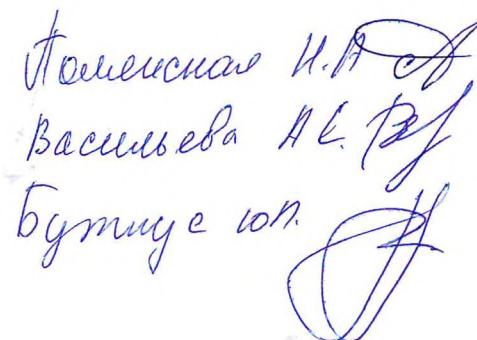 Поменская Н.А
Васильева А Е.
Бутнус Ю.П.